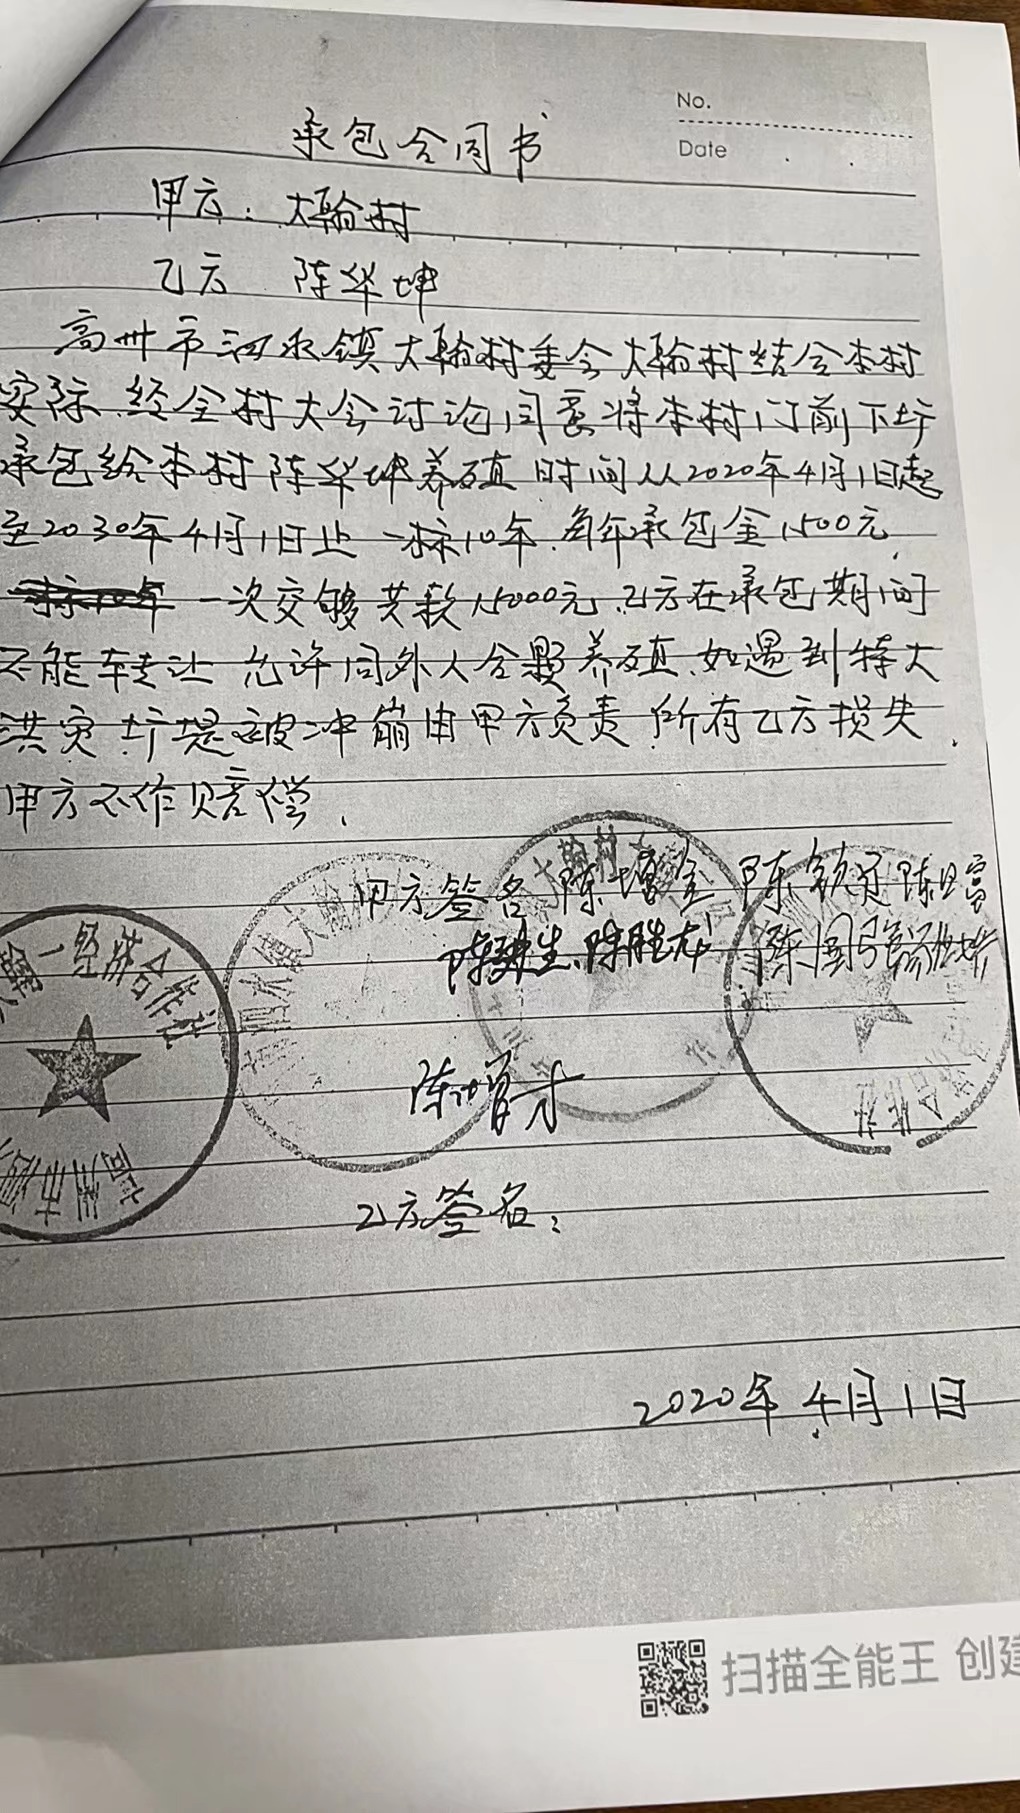 No.
Date
承包合同书
甲方：大翰村
乙方 陈华坤
高州市河水镇大翰村委会大翰村结合本村
实际.经全村大会讨论同意将本村门前下圹
承包给本村陈华坤养殖 时间从2020年4月1日起
至2030年4月1日止 一标10年.每年承包金1500元
一标10年 一次交够共款15000元.乙方在承包期间
不能转让 允许同外人合夥养殖.如遇到特大
洪灾 圹堤被冲崩由甲方负责 所有乙方损失
甲方不作赔偿.
甲方签名 陈增金 陈钦足 陈日富
陈建生、陈胜龙 陈国强
陈增才
大翰一经济合作社
高州市河
乙方签名：
2020年4月1日
扫描全能王 创建